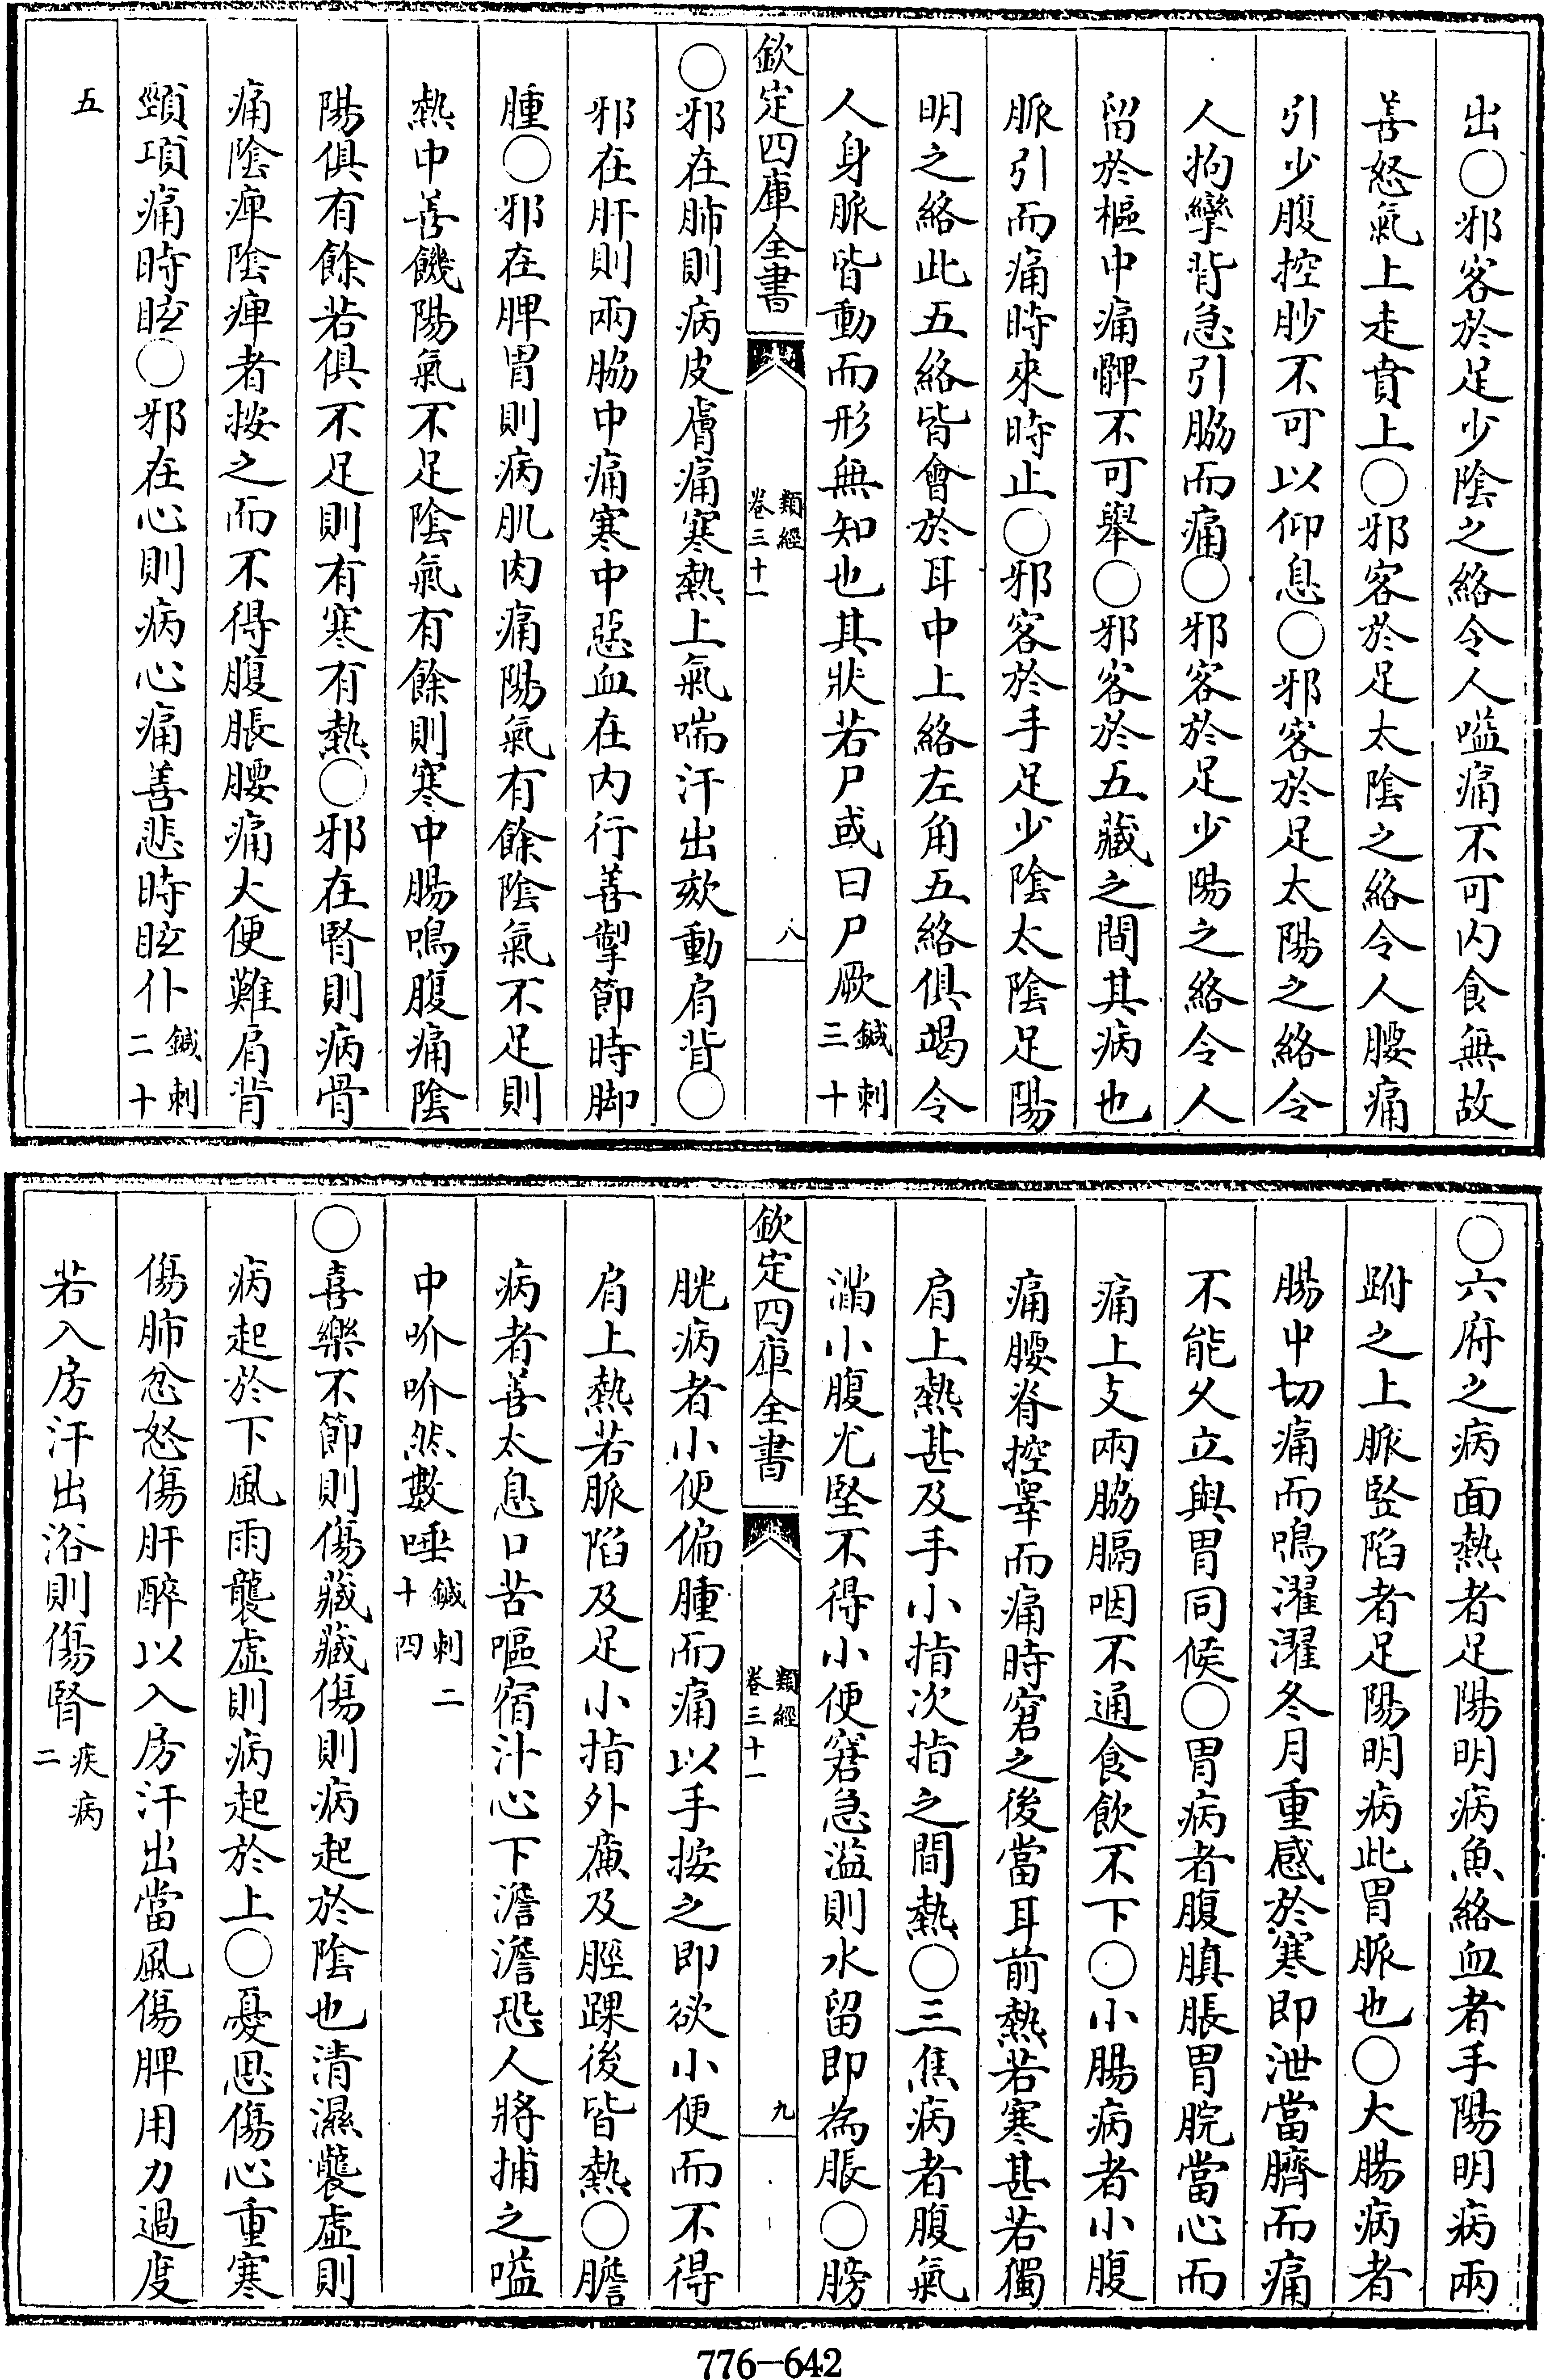 出○邪客於足少陰之絡令人嗌痛不可内食無故
善怒氣上走賁上○邪客於足太陰之絡令人腰痛
引少腹控䏚不可以仰息○邪客於足太陽之絡令
人拘攣背急引脇而痛○邪客於足少陽之絡令人
留於樞中痛髀不可舉○邪客於五藏之間其病也
脈引而痛時來時止○邪客於手足少陰太陰足陽
明之絡此五絡皆會於耳中上絡左角五絡俱竭令
人身脈皆動而形無知也其狀若尸或曰尸厥鍼刺三十
欽定四庫全書 類經卷三十一 八
○邪在肺則病皮膚痛寒熱上氣喘汗出欬動肩背○
邪在肝則兩脇中痛寒中惡血在内行善掣節時脚
腫○邪在脾胃則病肌肉痛陽氣有餘陰氣不足則
熱中善饑陽氣不足陰氣有餘則寒中腸鳴腹痛陰
陽俱有餘若俱不足則有寒有熱○邪在腎則病骨
痛陰痺陰痺者按之而不得腹脹腰痛大便難肩背
頸項痛時眩○邪在心則病心痛善悲時眩仆鍼刺二十
五
○六府之病面熱者足陽明病魚絡血者手陽明病兩
跗之上脈竪陷者足陽明病此胃脈也○大腸病者
腸中切痛而鳴濯濯冬月重感於寒即泄當臍而痛
不能久立與胃同候○胃病者腹䐜脹胃脘當心而
痛上支兩脇膈咽不通食飲不下○小腸病者小腹
痛腰脊控睾而痛時窘之後當耳前熱若寒甚若獨
肩上熱甚及手小指次指之間熱○三焦病者腹氣
滿小腹尤堅不得小便窘急溢則水留即為脹○膀
欽定四庫全書 類經卷三十一 九
胱病者小便偏腫而痛以手按之即欲小便而不得
肩上熱若脈陷及足小指外廉及脛踝後皆熱○膽
病者善太息口苦嘔宿汁心下澹澹恐人將捕之嗌
中吤吤然數唾鍼刺二十四
○喜樂不節則傷藏藏傷則病起於陰也清濕襲虛則
病起於下風雨襲虛則病起於上○憂思傷心重寒
傷肺忿怒傷肝醉以入房汗出當風傷脾用力過度
若入房汗出浴則傷腎疾病二
776-642